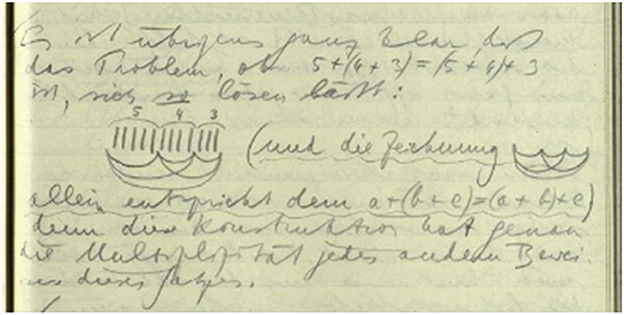 Es ist übrigens ganz klar daß
das Problem, ob 5+(4+3)=(5+4)+3
ist, sich so lösen läßt:
5 4 3
(und die Zeichnung
allein entspricht dem a+(b+c)=(a+b)+c)
denn diese Konstruktion hat genau
die Multiplizität jedes andern Bewei-
ses dieses Satzes.